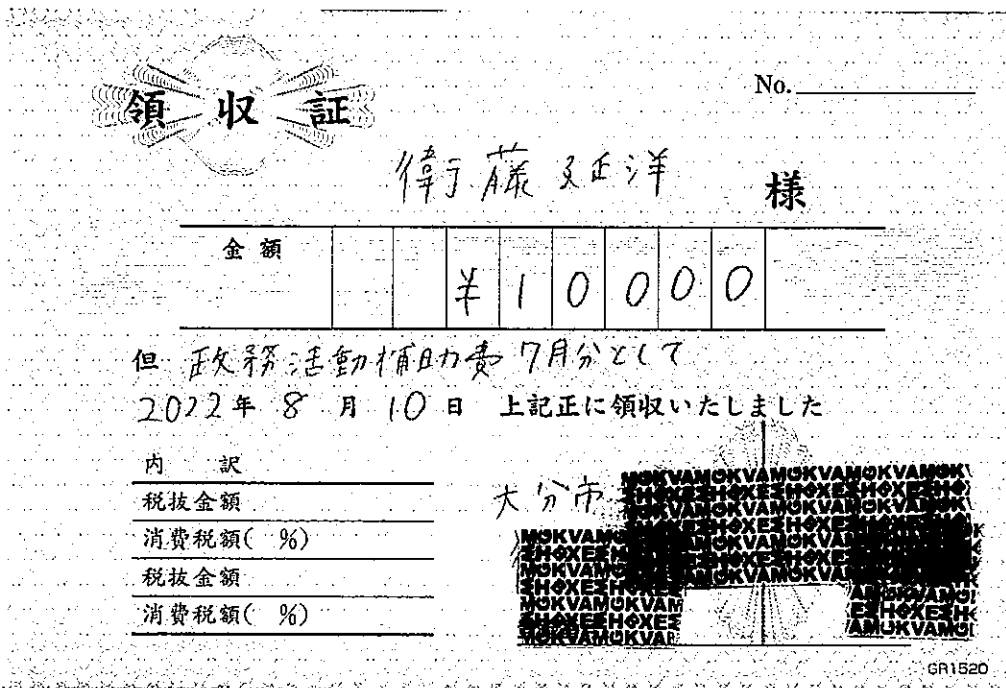 領収証
No.
衛藤延洋 様
金額 ¥10000
但 政務活動補助費 7月分として
2022年 8月 10日 上記正に領収いたしました
内訳
税抜金額
消費税額( %)
税抜金額
消費税額( %)
大分市
GR1520